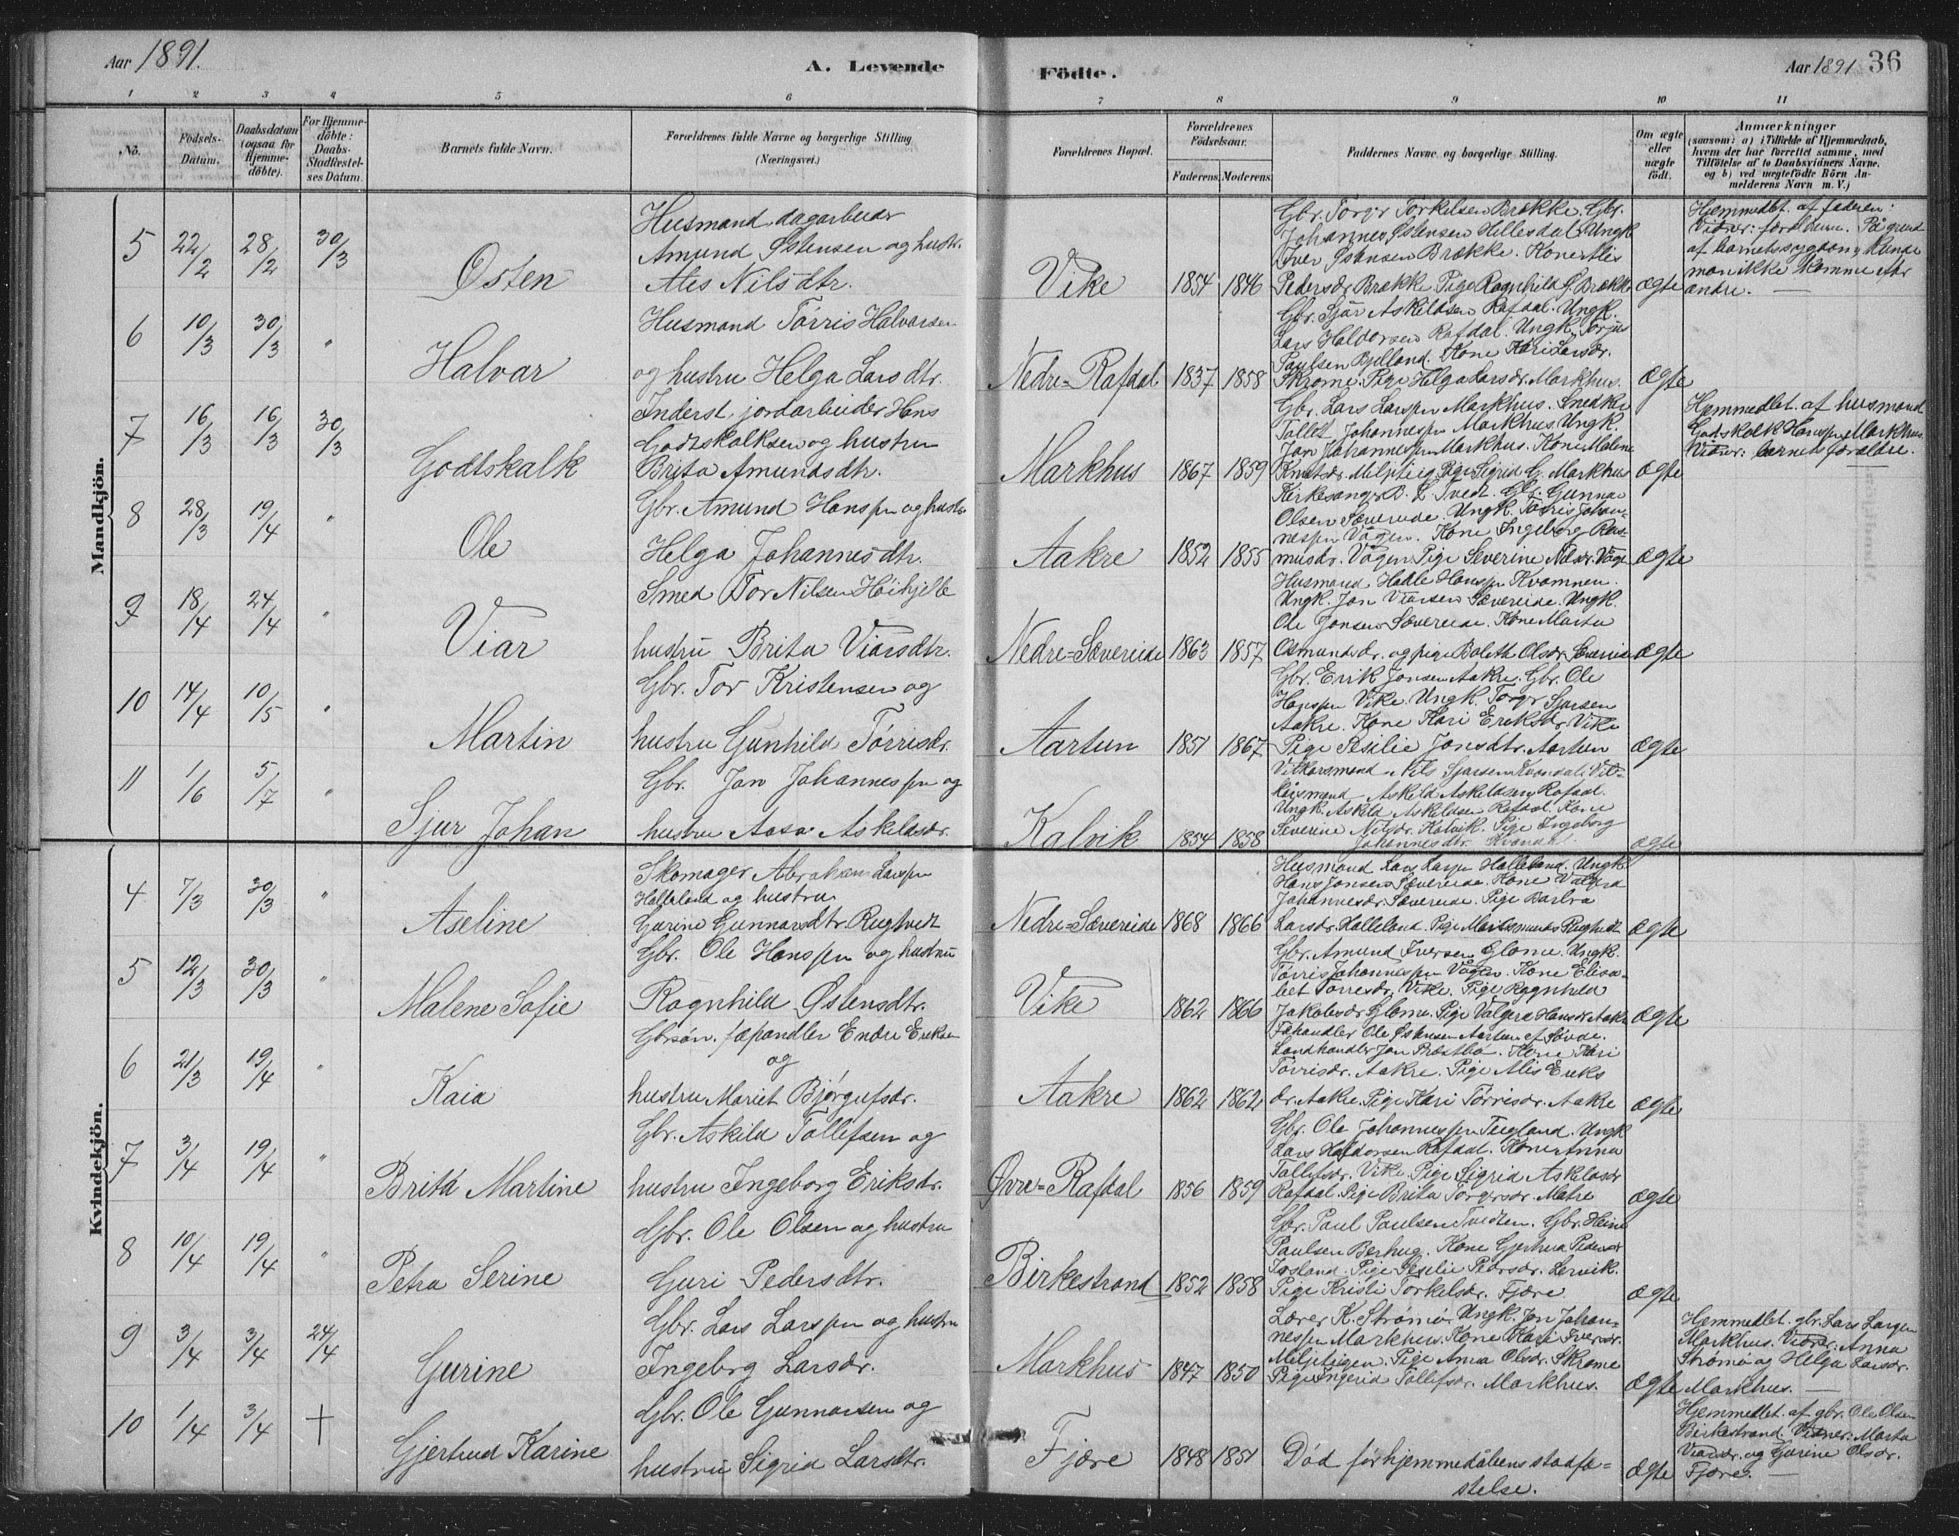 Aar 1891.
A. Levende
Födte.
Aar 1891 36
1 2 3 4 5 6 7 8 9 10 11
No.
Födsels-Datum.
Daabsdatum (ogsaa for Hjemmedöbte).
For Hjemmedöbte: Daabs-Stadfestelses Datum.
Barnets fulde Navn.
Forældrenes fulde Navne og borgerlige Stilling (Næringsvei.)
Forældrenes Bopæl.
Forældrenes Födselsaar.
Faderens. Moderens.
Faddernes Navne og borgerlige Stilling.
Om ægte eller uægte födt.
Anmærkninger
(saasom: a) i Tilfælde af Hjemmedaab, hvem der har forrettet samme, med Tilföielse af to Daabsvidners Navne, og b) ved uægtefödte Börn Anmelderens Navn m. V.)
Mandkjön.
5 22/2 28/2 30/3 Østen
Husmand dagarbeider
Amund Østensen og hustr.
Ales Nilsdtr.
Vike 1854 1846
Gbr. Torgr Torkelsen Brække. Gbr.
Johannes Østensen Hillesdal. Ungk
Iver Østensen Brække. Kone Alis
Pedersdr Brække. Pige Ragnhild Brække
ægte
Hjemmedbt. af faderen:
Vidner: forældrene. På grund
af barnets sygdom kunde
man ikke komme efter
andre. —
6 10/3 30/3 " Halvar
Husmand Tørris Halvarsen
og hustru Helga Larsdtr.
Nedre-Rafdal 1837 1858
Gbr. Sjur Askildsen Rafdal. Ungk.
Lars Haldorsen Rafdal. Ungk. Torjus
Paulsen Bjelland. Kone Kari Larsdr.
Skrome. Pige Helga Larsdr. Markhus.
ægte
7 16/3 16/3 30/3 Godtskalk
Inderst jordarbeider Hans
Godtskalksen og hustru
Brita Amundsdtr.
Markhus 1867 1859
Gbr. Lars Larssen Markhus. Snedker
Tollef Johannessen Markhus. Ungk.
Jon Johannessen Markhus. Kone Malene
Knutsdr. Miljeteig. Pige Sigrid G. Markhus
ægte
Hjemmedbt. af husmand
Godskalk Hanssen Markhus.
Vidner: barnets forældre.
8 28/3 19/4 " Ole
Gbr. Amund Hanssen og hustru
Helga Johannesdtr.
Aakre 1852 1855
Kirkesanger B. L. Tvedt. Gbr. Gunnar
Olsen Sævereide. Ungk. Tørris Johan-
nessen Vågen. Kone Ingeborg Ras-
musdr. Vågen. Pige Severine Nilsdr. Våge
ægte
9 18/4 24/4 " Viar
Smed Tor Nilsen Høikjelle
hustru Brita Viarsdtr.
Nedre-Sævereide 1863 1857
Husmand Hadle Hanssen Kvamnen.
Ungk. Jon Viarsen Sævereide. Ungk.
Ole Jonsen Sævereide. Kone Marta
Osmundsdr. og pige Boleth Olsdr. Sævereide
ægte
10 14/4 10/5 " Martin
Gbr. Tor Kristensen og
hustru Gunhild Tørrisdr.
Aartun 1851 1867
Gbr. Erik Jonsen Aakre. Gbr. Ole
Hanssen Vike. Ungk. Torgr Sjursen
Aakre. Kone Kari Eriksdr. Vike
og Pige Sesilie Jonsdtr. Aartun
ægte
11 1/6 5/7 " Sjur Johan
Gbr. Jon Johannessen og
hustru Aasa Askildsdr.
Kalvik 1854 1858
Vilkårsmand Nils Sjursen Kvandal. Vil-
kårsmand Askild Askildsen Rafdal.
Ungk. Askild Askildsen Rafdal. Kone
Severine Nilsdr. Kalvik. Pige Ingeborg
Johannesdtr. Kvandal
ægte
Kvindekjön.
4 7/3 30/3 " Aseline
Skomager Abraham Larssen
Halleland og hustru
Gurine Gunnarsdtr. Rugtvedt
Nedre-Sævereide 1868 1866
Husmand Lars Larssen Halleland. Ungk.
Hans Jonsen Sævereide. Kone Valgerd
Johannesdr. Sævereide. Pige Barbra
Larsdr. Halleland. Pige Rugtvedt
ægte
5 12/3 30/3 " Malene Sofie
Gbr. Ole Hanssen og hustru
Ragnhild Østensdtr.
Vike 1862 1866
Gbr. Amund Iversen Glome. Ungk.
Tørris Johannessen Vågen. Kone Elisa-
bet Torresdr. Vike. Pige Ragnhild
Jakobsdr Glome. Pige Valgerd Hansdr. Aakre
ægte
6 21/3 19/4 " Kaia
Gbrsøn. fæhandler Endre Eriksen
og
hustru Mariet Bjørgufsdr.
Aakre 1862 1862
Fæhandler Ole Østensen Aartun af Søvde.
Landhandler Jon Prestbø. Kone Kari
Tørrisdr. Aakre. Pige Alis Eriks
dr. Aakre. Pige Kari Tørrisdr. Aakre
ægte
7 3/4 19/4 " Brita Martine
Gbr. Askild Tollefsen og
hustru Ingeborg Eriksdr.
Øvre-Rafdal 1856 1859
Gbr. Ole Johannessen Teigland. Ungk
Lars Haldorsen Rafdal. Kone Anna
Tollefsdr. Vike. Pige Sigrid Askildsdr
Rafdal. Pige Brita Torgersdr. Matre
ægte
8 10/4 19/4 " Petra Serine
Gbr. Ole Olsen og hustru
Guri Pedersdtr.
Birkestrand 1852 1858
Gbr. Paul Paulsen Tvedten. Gbr. Heine
Paulsen Berhug. Kone Gjertrud Pedersdr
Pige Sesilie Pedersdr. Lervik.
Pige Kristi Torkelsdr. Fjære
ægte
9 3/4 3/4 24/4 Gurine
Gbr. Lars Larssen og hustru
Ingeborg Larsdr.
Markhus 1847 1850
Lærer K. Strømø. Ungk. Jon Johan-
nessen Markhus. Kone Kari Iversdr.
Miljeteigen. Pige Anna Olsdr. Skrome
Pige Ingerid Tollefsdr. Markhus.
ægte
Hjemmedbt. gbr. Lars Larsen
Markhus. Vidner: Anna
Strømø og Helga Larsdr.
Markhus. —
10 1/4 3/4 † Gjertrud Karine
Gbr. Ole Gunnarsen og
hustru Sigrid Larsdtr.
Fjære 1848 1851
Død før hjemmedåbens stadfæ-
stelse.
ægte
Hjemmedbt. af gbr. Ole Olsen
Birkestrand. Vidner: Marta
Viarsdr. og Gurine Olsdr.
Fjære. —